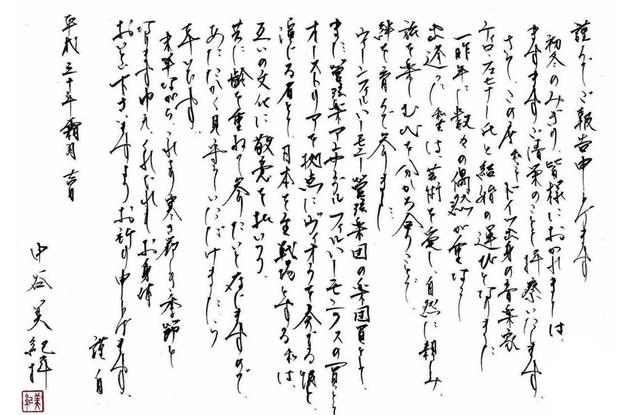 謹んでご報告申し上げます
初冬のみぎり皆様におかれましては、
ますますご清栄のことと拝察いたします。
さて、この度ドイツ出身の音楽家
ティロ・フェヒナー氏と結婚の運びとなりました。
一昨年に数々の偶然が重なり
出逢った私達は、芸術を愛し、自然に親しみ、
旅を楽しむ心を分かち合うことで、
絆を育んで参りました。
ウィーンフィルハーモニー管弦楽団の楽団員として
また管弦楽アンサンブルフィルハーモニクスの一員として
オーストリアを拠点にヴィオラを奏でる彼と
演じる者として日本を主戦場とする私は、
互いの文化に敬意を払いつつ
共に齢を重ねて参りたいと存じますので
あたたかく見守っていただけましたら
幸いです。
末筆ながら、これより寒さ厳しき季節と
なりますゆえくれぐれもお身体
おいといくださいますようお祈り申し上げます。
謹白
平成三十年霜月吉日
中谷美紀拝
美紀